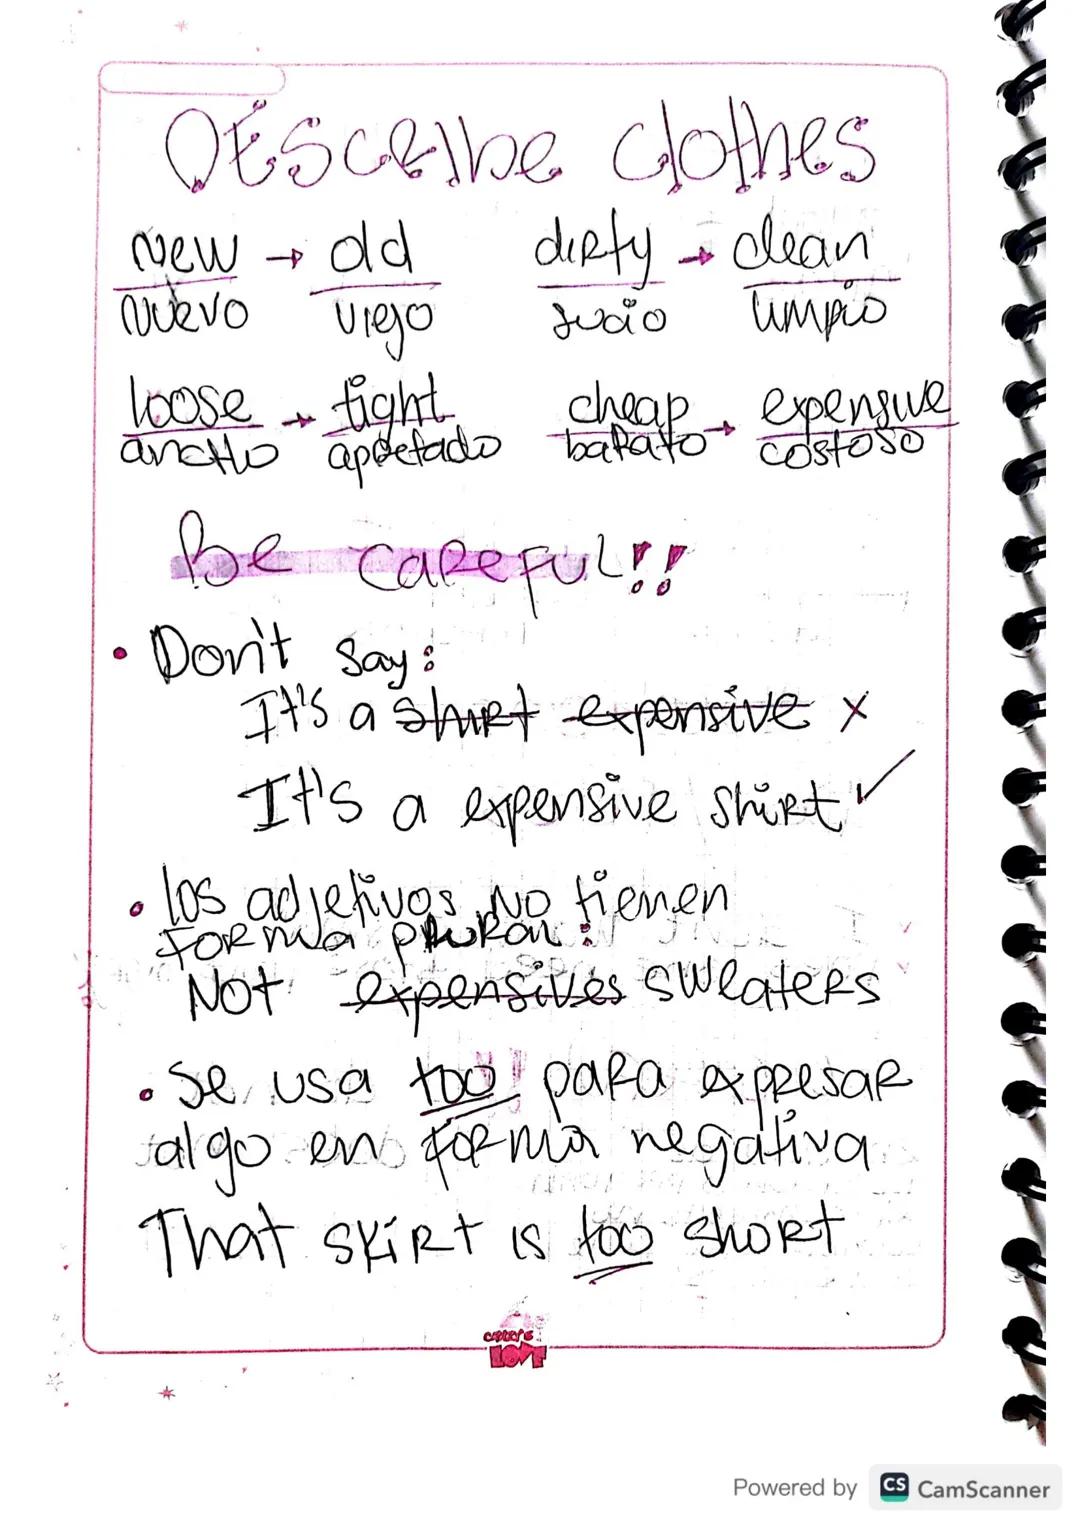 DEscRIbe clothes
New → old dirty → clean
Nuevo viejo sucio limpio
loose → tight cheap → expensive
ancHo apretado barato costoso
Be careful!!
• Don't say:
It's a shirt expensive x
It's a expensive shirt ✓
• los adjetivos NO tienen
forma plural:
Not expensives sweaters
• Se usa too para expresar
algo en forma negativa
That skirt is too short
LOVE
Powered by CS CamScanner